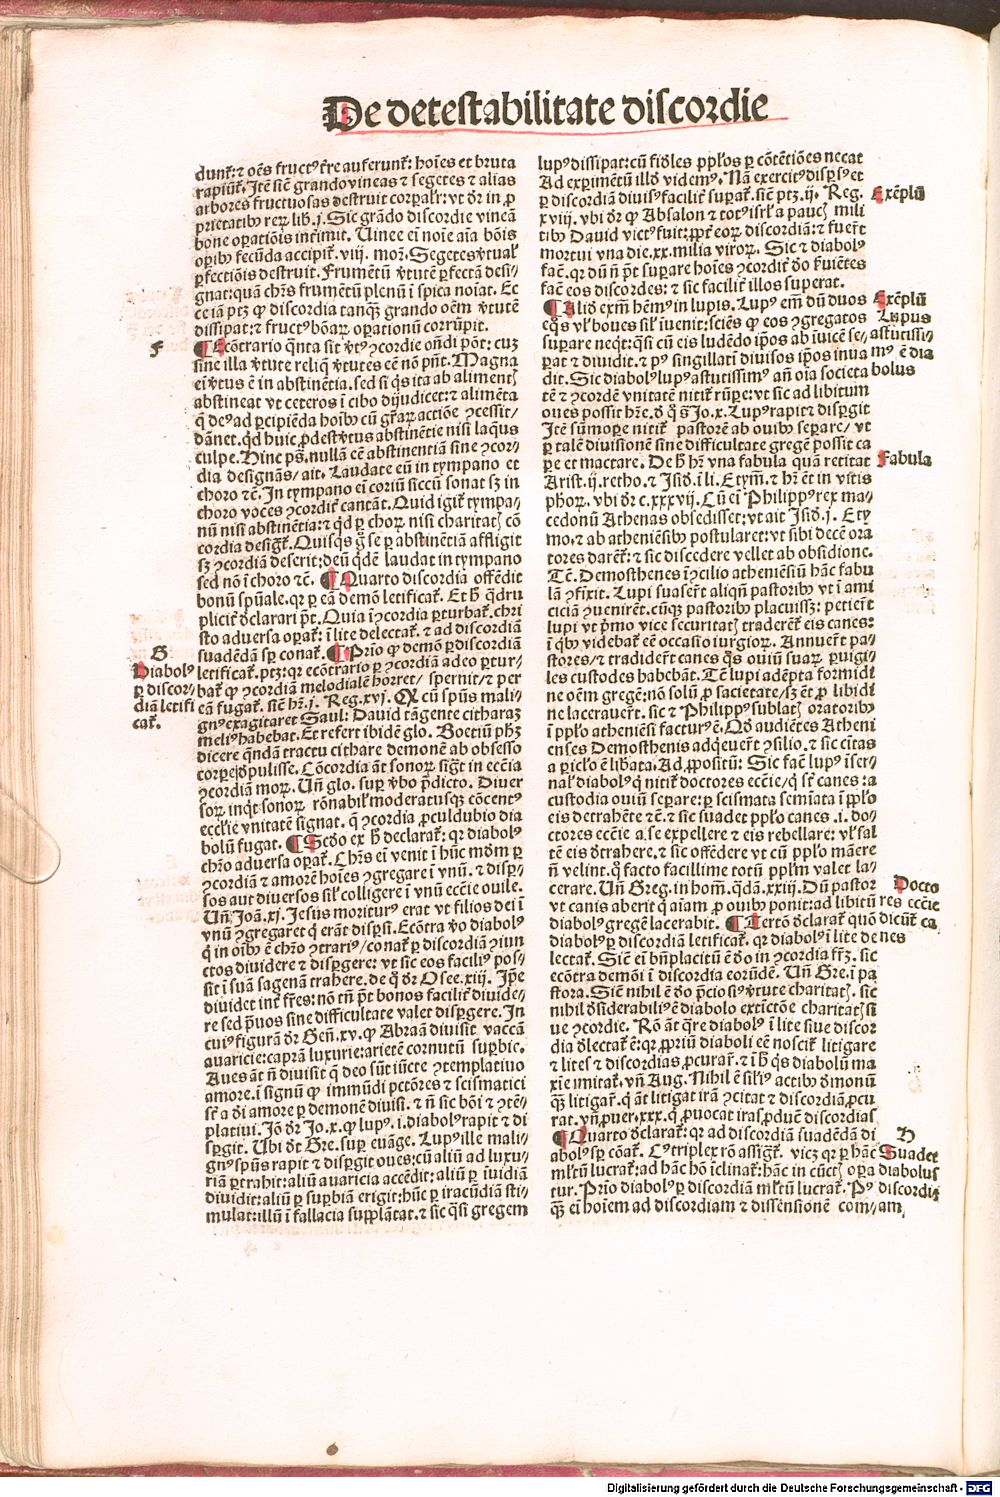 De detestabilitate discordie
dunt᷑: ⁊ oēs fruct᷒ t̄re auferunt᷑: hoīes et bruta
rapiūt᷑. Itē sic̄ grando vineas ⁊ segetes ⁊ alias
arbores fructuosas destruit corꝑalr̄: vt dr̄ in ꝓ
prietatibꝰ reꝝ lib. j. Sic grādo discordie vineā
bone operatiōnis interimit. Uinee eī noīe aīa bōis
oꝑibꝰ fecūda accipit᷑. viij. moꝝ. Segetes v̄tualꝰ
ꝑfectiōis destruit. Frumētū v̄tutē ꝑfectā desi-
gnat: quā chr̄s frumētū plenū ī spica noīat. Et
ec̄ iā ptꝫ ꝙ discordia tanqꝫ grando oēm v̄tutē
dissipat: ⁊ fruct᷒ bōaꝝ oꝑationū corrūpit.
F
¶ Ecōtrario q̄nta sit v̄t᷒ ꝯcordie on̄di pōt: cuꝫ
sine illa v̄tute reliq̄ v̄tutes eē nō pn̄t. Magna
eī v̄tus ē in abstinētia. sed si q̄s ita ab alimentꝭ
abstineat vt ceteros ī cibo dijudicet: ⁊ alimēta
q̄ de᷒ ad ꝑcipiēda hoībꝰ cū gr̄aꝝ actiōe ꝯcessit/
dānet. qd̄ huic ꝓdest v̄tus abstinētie nisi laqus
culpe. Hinc ps̄. nullā eē abstinentiā sine ꝯcor-
dia designās/ ait. Laudate eū in tympano et
choro ⁊c̄. In tympano eī coriū siccū sonat sꝫ in
choro voces ꝯcordit᷑ cantāt. Quid igit᷑ tympa-
nū nisi abstinētia: ⁊ qd̄ ꝑ choꝝ nisi charitatꝭ cō
cordia desig᷑t᷑. Quisqs̄ g̊ se ꝑ abstinētiā affligit
sꝫ ꝯcordiā deserit: deū qd̄ē laudat in tympano
sed nō ī choro ⁊c̄. ¶ Quarto discordia offēdit
bonū spūale. qꝛ ꝑ eā demō letificat᷑. Et h̄ q̄dru
plicit᷑ d̄clarari pt̄. Quia īꝯcordia ꝑturbat᷑. chri
sto adversa oꝑat᷑: ī lite delectat᷑. ⁊ ad discordiā
suadēdā sꝑ conat᷑. ¶ Prīo ꝙ demō ꝑ discordiā
G
Diabol᷒
ꝑ discor-
diā letifi
cat᷑.
letificat᷑. ptꝫ: qꝛ ecōtrario ꝑ ꝯcordiā adeo ꝑtur-
bat᷑ ꝙ ꝯcordiā melodialē horret/ spernit/ ⁊ per
eā fugat᷑. sic̄ hr̄. j. Reg. xvj. Ꝙ cū spūs mali-
gn᷒ exagitaret Saul: Dauid tāgente citharaꝫ
meli᷒ habebat. Et refert ibidē glo. Boetiū pħꝫ
dicere qn̄dā tractu cithare demonē ab obsesso
corꝑe expulisse. Cōcordia āt sonoꝝ sig᷑t in ecc̄ia
ꝯcordiā moꝝ. Un̄ glo. suꝑ v̄bo p̄dicto. Diver
soꝝ inqͥt sonoꝝ rōnabil᷒ moderatusqꝫ cōcent᷒
ecclīe vnitatē signat. q̄ ꝯcordia ꝓculdubio dia
bolū fugat. ¶ Scd̄o ex h̄ declarat᷑: qꝛ diabol᷒
chr̄o adversa oꝑat᷑. Chr̄s eī venit ī hūc mūdū ꝑ
ꝯcordiā ⁊ amorē hoīes ꝯgregare ī vnū. ⁊ disꝑ-
sos aut diversos sīl colligere ī vnū ecc̄ie ouile.
Un̄ Joā. xj. Jesus moritur᷒ erat vt filios dei ī
vnū ꝯgregaret q̄ erāt disꝑsi. Ecōtra v̄o diabol᷒
qͥ in oībꝰ ē chr̄o ꝯtrari᷒/ conat᷑ ꝑ discordiā ꝯiun
ctos dividere ⁊ disꝑgere: vt sic eos facili᷒ pos-
sit ī suā sagenā trahere. de qͦ dr̄ Osee. xiij. Ip̄e
dividet int᷑ fr̄es: nō tn̄ pt̄ bonos facilit᷑ divide-
re sed p̄uos sine difficultate valet disꝑgere. In
cui᷒ figurā dr̄ Gen̄. xv. ꝙ Abraā divisit vaccā
auaricie: caprā luxurie: arietē cornutū suꝑbie.
Aves āt nō divisit q̄ deo sūt iūcte ꝯtemplatiuo
amore. ī signū ꝙ immūdi pctōres ⁊ scismatici
sr̄t a d̄i amore ꝑ demonē divisi. ⁊ nō sic bōi ⁊ ꝯtē-
platiui. Iō dr̄ Jo. x. ꝙ lup᷒. i. diabol᷒ rapit ⁊ di
sꝑgit. Ubi dt̄ Gre. suꝑ evāge. Lup᷒ ille mali-
gn᷒ spūs rapit ⁊ disꝑgit oues: cū aliū ad luxu-
riā ꝑtrahit: aliū avaricia accēdit: aliū ꝑ iuidiā
dividit: aliū ꝑ suꝑbiā erigit: hūc ꝑ iracūdiā sti-
mulat: illū ī fallacia supplātat. ⁊ sic qͣsi gregem
lup᷒ dissipat: cū fidēles ppl̄os ꝑ cōtētiōes necat
Ad expimētū illd̄ videm᷒. Nā exercit᷒ disꝑs᷒ et
ꝑ discordiā divis᷒ facilit᷑ suꝑat᷑. sic̄ ptꝫ. ij. Reg.
Exēplū
xviij. vbi dr̄ ꝙ Absalon ⁊ tot᷒ isrl̄ a paucꝭ mili
tibꝰ David vict᷒ fuit: ꝓpt᷑ eoꝝ discordiā: ⁊ fuerūt
mortui vna die. xx. milia viroꝝ. Sic ⁊ diabol᷒
facit. qꝛ dū nō pt̄ suꝑare hoīes ꝯcordit᷑ d̄o ſuiētes
facit eos discordes: ⁊ sic facilit᷑ illos superat.
¶ Aliō exm̄ hēm᷒ in lupis. Lup᷒ em̄ dū duos
Exēplū
Lupus
astutissi-
m᷒ ē dia
bolus
eqͦs vl̄ boves sil᷒ īuenit: sciēs ꝙ eos ꝯgregatos
suꝑare neqt: qͣsi cū eis ludēdo ip̄os ab iuicē se-
ꝑat ⁊ dividit. ⁊ p᷒ singillatī diuisos ip̄os inua
dit. Sic diabol᷒ lup᷒ astutissim᷒ an̄ oīa societa
tē ⁊ ꝯcordē vnitatē nitit᷑ rūpe: vt sic ad libitum
oues possit hr̄e. d̄ qͦ s̄ Jo. x. Lup᷒ rapit ⁊ disꝑgit
Itē sūmoꝑe nitit᷑ pastorē ab ouibꝰ seꝑare/ vt
ꝑ talē divisionē sine difficultate gregē possit ca
pe et mactare. De h̄ hr̄ vna fabula quā recitat
Fabula
Arist. ij. retho. ⁊ Isid̄. ī li. Etym̄. ⁊ hr̄ et in vitis
pħoꝝ. vbi dr̄ c. xxxvij. Cū eī Philipp᷒ rex ma-
cedonū Athenas obsedisset: vt ait Isid̄. j. Ety
mo. ⁊ ab atheniēsibꝰ postularet: vt sibi decē ora
tores darēt᷑: ⁊ sic discedere vellet ab obsidione.
Tc̄. Demosthenes īꝯcilio atheniēsiū hāc fabu
lā ꝯfixit. Lupi suaser̄t aliqn̄ pastoribꝰ vt ī ami
ciciā ꝯuenirēt. cūqꝫ pastoribꝰ placuissꝫ: petierūt
lupi vt p̄mo vice securitatꝭ traderēt᷑ eis canes:
ī qͥbꝰ videbat᷑ eē occasio iurgioꝝ. Annuer̄t pa-
stores/ ⁊ tradider̄t canes qͦs ouiū suaꝝ ꝑuigi-
les custodes habebāt. Tc̄ lupi adēpta formidī
ne oēm gregē: nō solū ꝓ sacietate/ sꝫ ēt ꝓ libidī
ne laceraver̄t. sic ⁊ Philipp᷒ sublatꝭ oratoribꝰ
ī ppl̄o atheniēsi factur᷒ ē. Qd̄ audiētes Atheni
enses Demosthenis adq̄euer̄t ꝯsilio. ⁊ sic civitas
a ꝑiclo ē libata. Ad ꝓpositū: Sic facit lup᷒ īfer-
nal᷒ diabol᷒ qͥ nitit᷑ doctores ecc̄ie/ qͥ sr̄t canes: a
custodia ouiū seꝑare: ꝑ scismata semīata ī ppl̄o
eis detrahēte ⁊c̄. ⁊ sic suadet ppl̄o canes. i. do-
ctores ecc̄ie a se expellere ⁊ eis rebellare: vl̄ sal
tē eis d̄trahere. ⁊ sic offēdere vt cū ppl̄o māere
nō velint. qͦ facto facillime totū ppl̄m valet la-
cerare. Un̄ Greg. in hom̄. qͣdā. xxiij. Dū pastor
vt canis aberit qͥ aīam ꝓ ouibꝰ ponit: ad libitū
Docto
res ecc̄ie
dicūt᷑ ca
nes
diabol᷒ gregē lacerabit. ¶ Tertō d̄clarat᷑ quō
diabol᷒ ꝑ discordiā letificat᷑. qꝛ diabol᷒ ī lite de
lectat᷑. Sic̄ eī bn̄placitū ē d̄o in ꝯcordia fr̄ꝫ. sic
ecōtra demōi ī discordia eorūdē. Un̄ Gre. ī pa
stora. Sic̄ nihil ē d̄o p̄cio si᷒ v̄tute charitatꝭ. sic
nihil d̄siderabili᷒ ē diabolo extīctōe charitatꝭ si
ue ꝯcordie. Rō āt q̄re diabol᷒ ī lite siue discor
dia d̄lectat᷑ ē: qꝛ ꝓpriū diaboli eē noscit᷑ litigare
⁊ lites ⁊ discordias ꝓcurat᷑. ⁊ ī h̄ qͥs diabolū ma
xīe imitat᷑. vn̄ Aug. Nihil ē sil᷒ actibꝰ d̄monū
qͣꝫ litigat᷑. qͥ āt litigat irā ꝯcitat ⁊ discordiā ꝓcu
rat. vn̄ ꝓuer. xxx. qͥ ꝓuocat iras ꝓducit discordias
¶ Quarto d̄clarat᷑: qꝛ ad discordiā suadēdā di
H
Suadet
diabolus
discordi
am
abol᷒ sꝑ cōat᷑. Cui᷒ triplex rō assig᷑t᷑. vicꝫ qꝛ ꝑ hāc
ml̄tū lucrat᷑: ad hāc hō īclinat᷑: hāc in cūctꝭ oꝑa
tur. Prīo diabol᷒ ꝑ discordiā ml̄tū lucrat᷑. P᷒
qͣꝫ eī hoīem ad discordiam ⁊ dissensionē com-
Digitalisierung gefördert durch die Deutsche Forschungsgemeinschaft - DFG